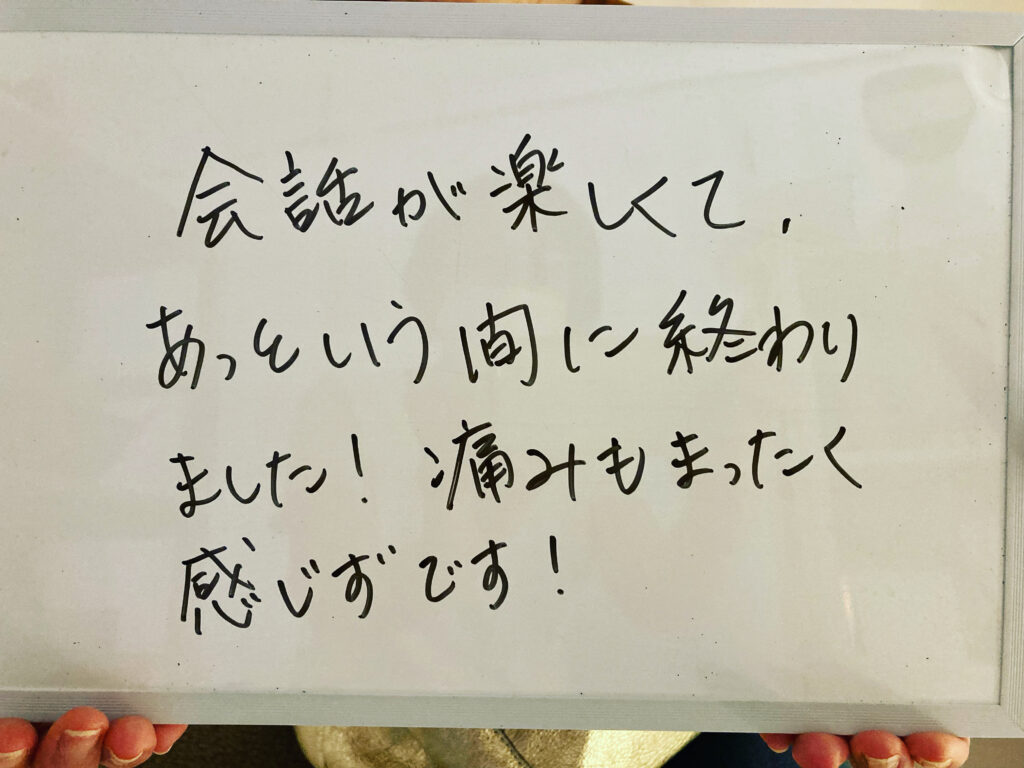 会話が楽しくて、
あっという間に終わり
ました！ 痛みもまったく
感じずです！